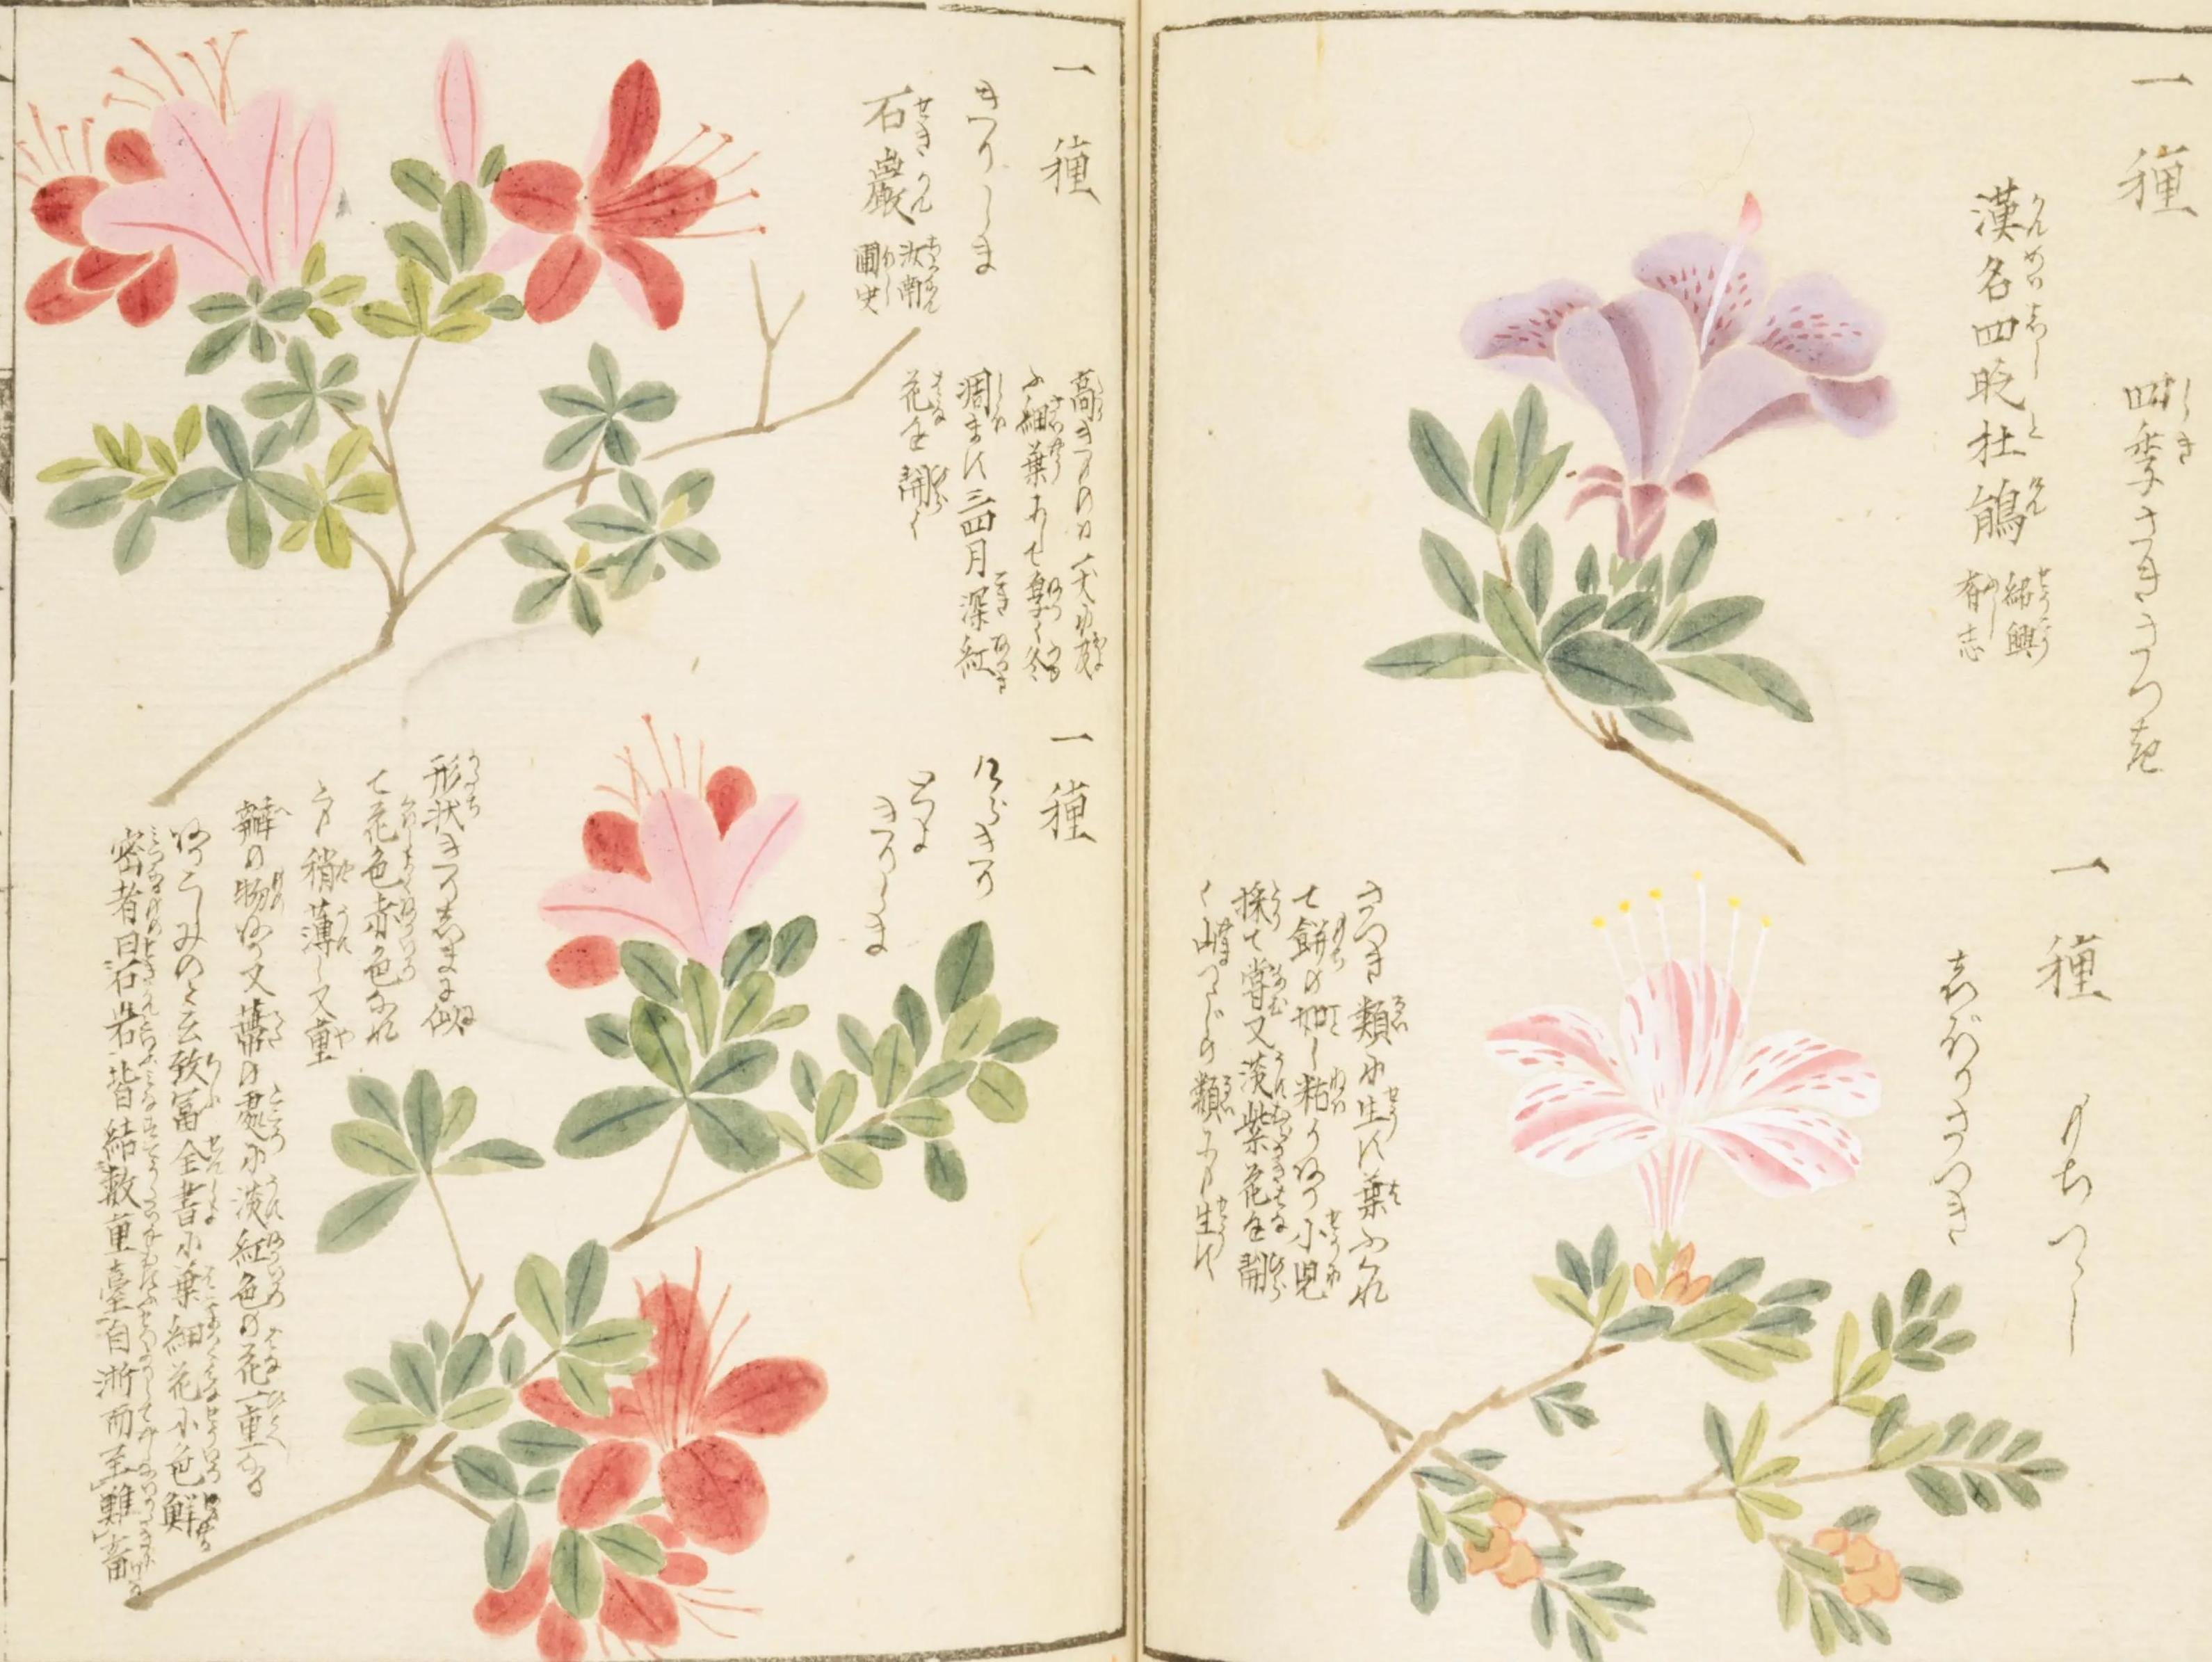 一種
四季さきさつき
漢名四時杜鵑
紹興
有志
一種
もちつゝじ
さつき類に生ス葉ふくれ
て餅の如し粘りあり小児
採て嘗又淡紫花を開
く山つゝじの類にも生ス
一種
きりしま
石巌
汝南
圃史
高きものハ一丈に及
ふ細葉にして厚く冬
凋ます三四月深紅
花を開く
一種
きりしま
形状きりしまに似
て花色赤色なれ
とも稍薄し又重
辧の物あり又蔕の處に淡紅色の花一重なる
ありこしみのと云致冨全書小葉細花小色鮮
密者曰石岩皆結数重臺自浙而至難畜